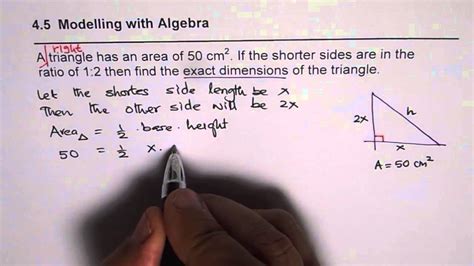 4.5 Modelling with Algebra
right
A triangle has an area of 50 cm². If the shorter sides are in the
ratio of 1:2 then find the exact dimensions of the triangle.
Let the shortes side length be x
Then the other side will be 2x
Area△ = ½ · base · height
50 = ½ x ·
2x
h
x
A = 50 cm²